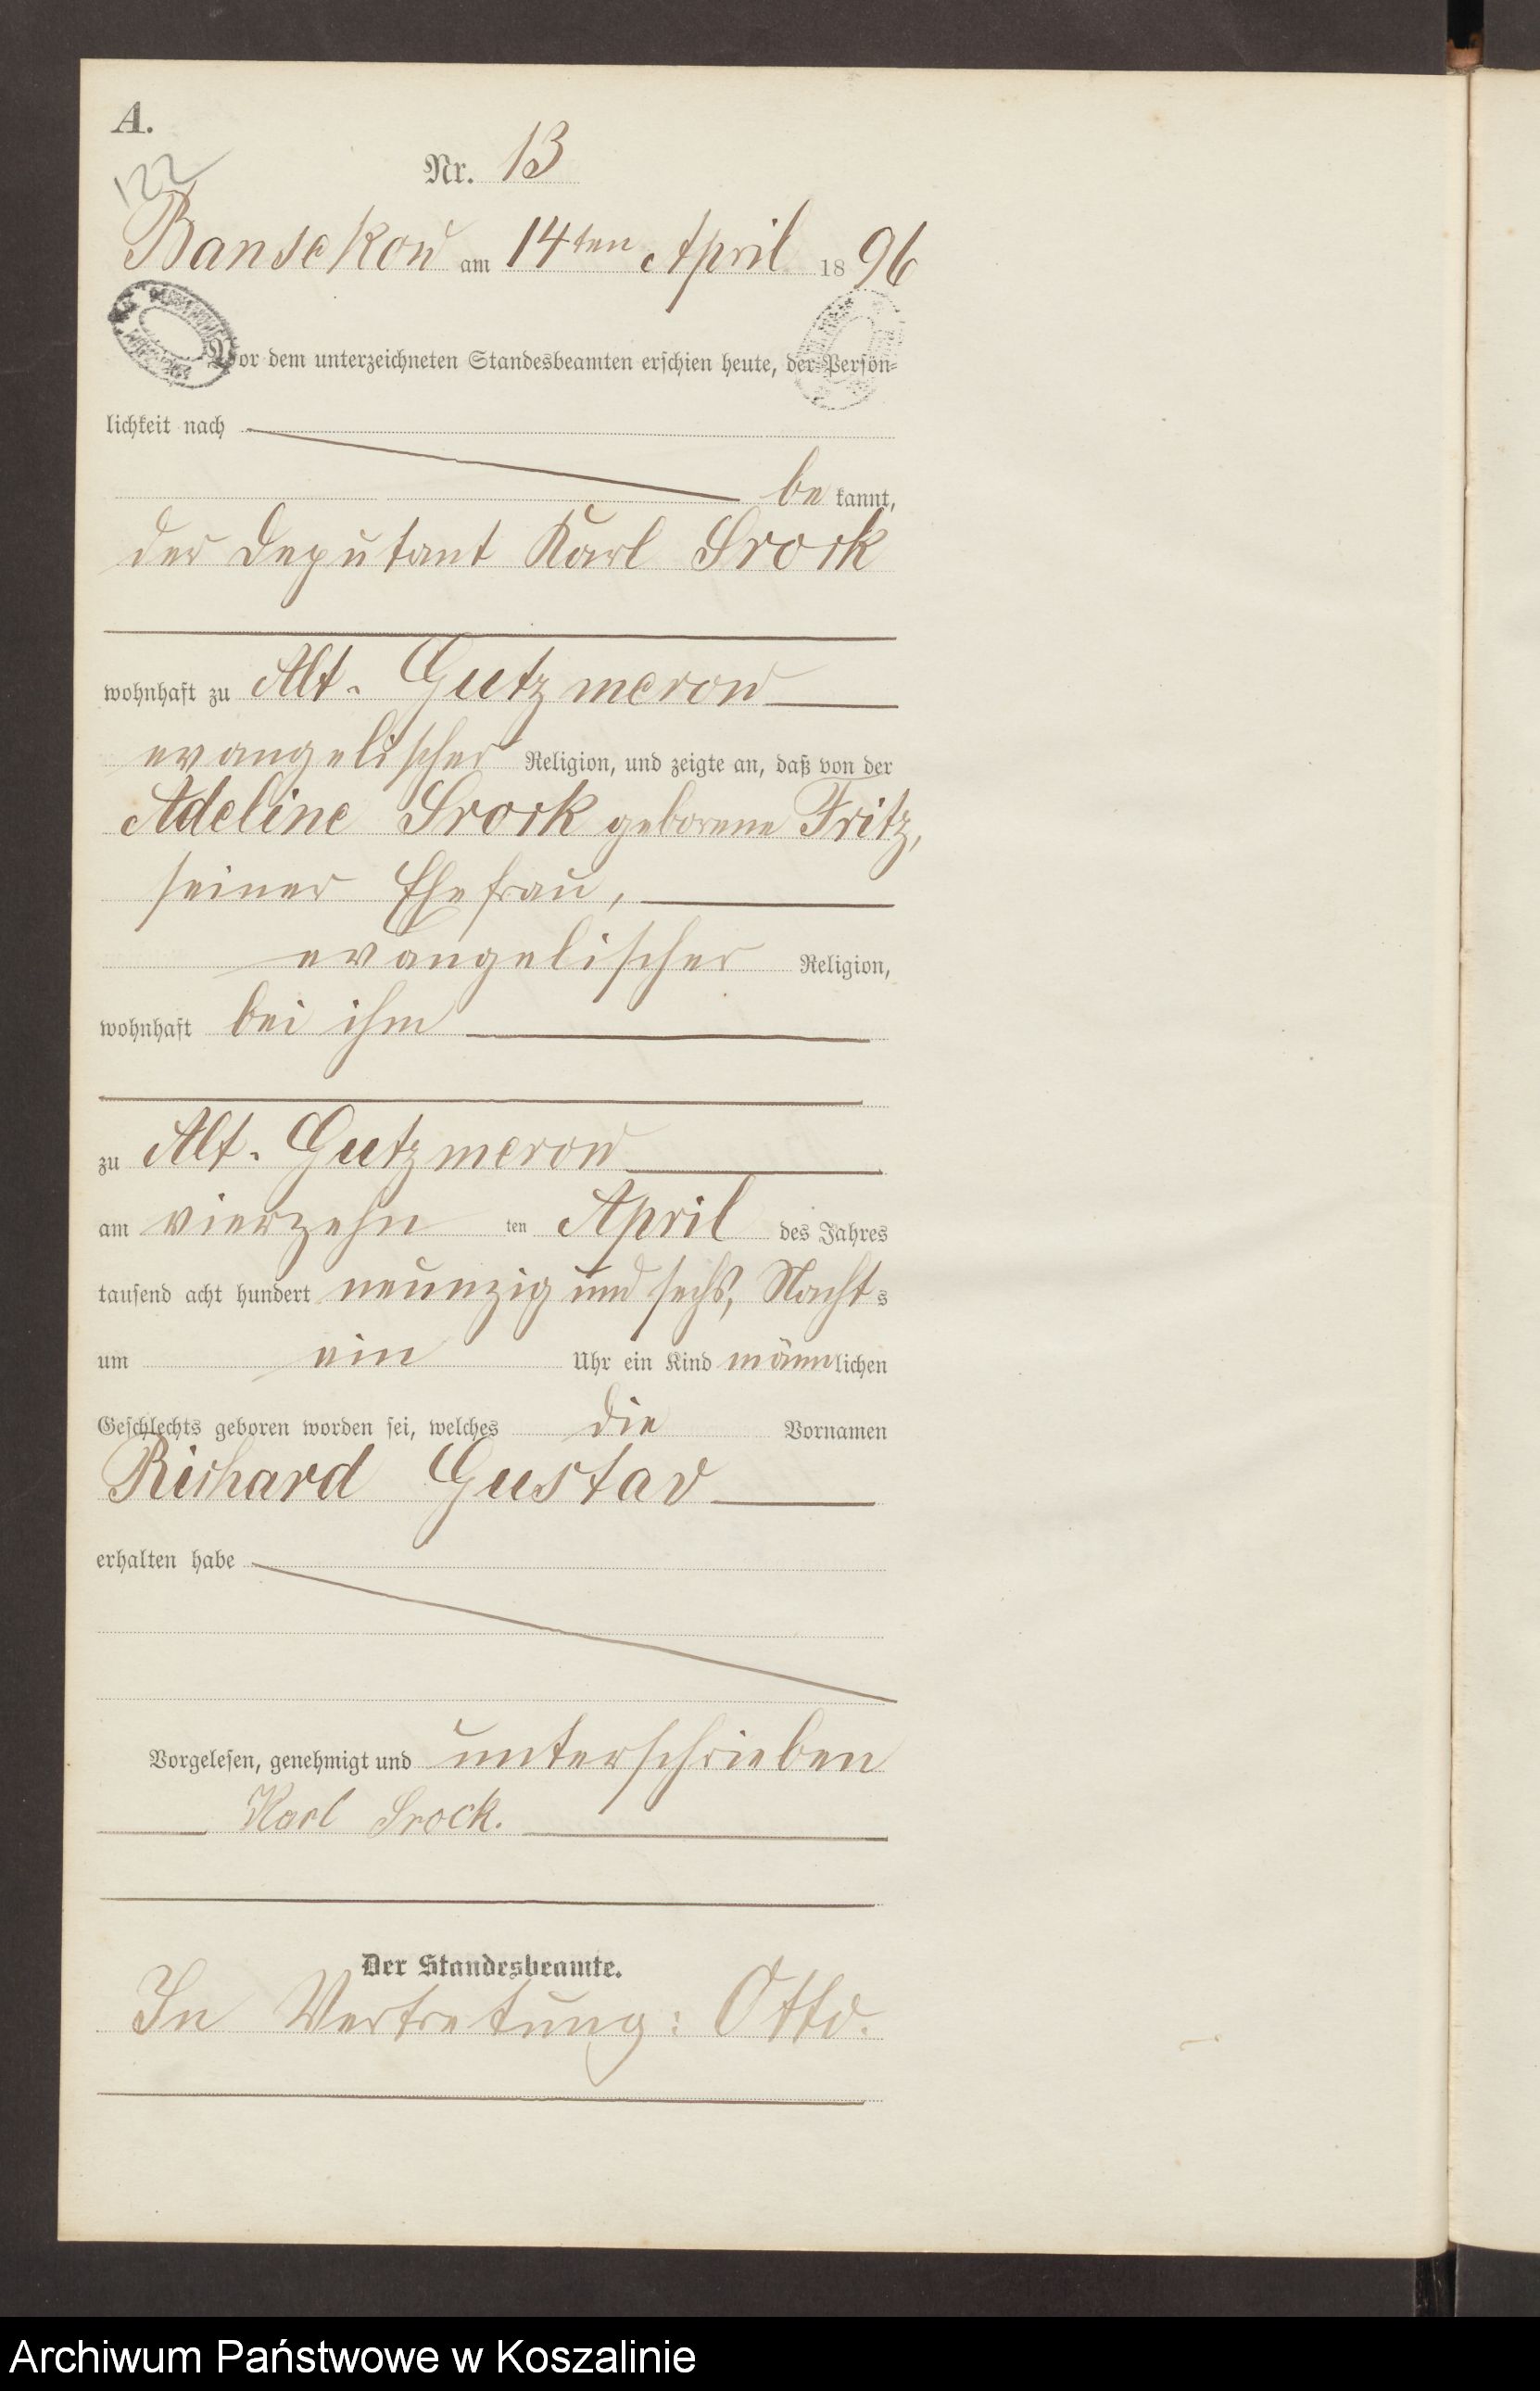 A.
122
Nr. 13
Bansekow am 14ten April 1896
Vor dem unterzeichneten Standesbeamten erschien heute, der Persön-
lichkeit nach
be kannt,
der Deputant Karl Srock
wohnhaft zu Alt-Gutzmerow
evangelischer Religion, und zeigte an, daß von der
Adeline Srock geborene Fritz,
seiner Ehefrau,
evangelischer Religion,
wohnhaft bei ihm
zu Alt-Gutzmerow
am vierzehn ten April des Jahres
tausend acht hundert neunzig und sechs, Nachts
um ein Uhr ein Kind männlichen
Geschlechts geboren worden sei, welches die Vornamen
Richard Gustav
erhalten habe
Vorgelesen, genehmigt und unterschrieben
Karl Srock.
Der Standesbeamte.
In Vertretung: Otto.
Archiwum Państwowe w Koszalinie